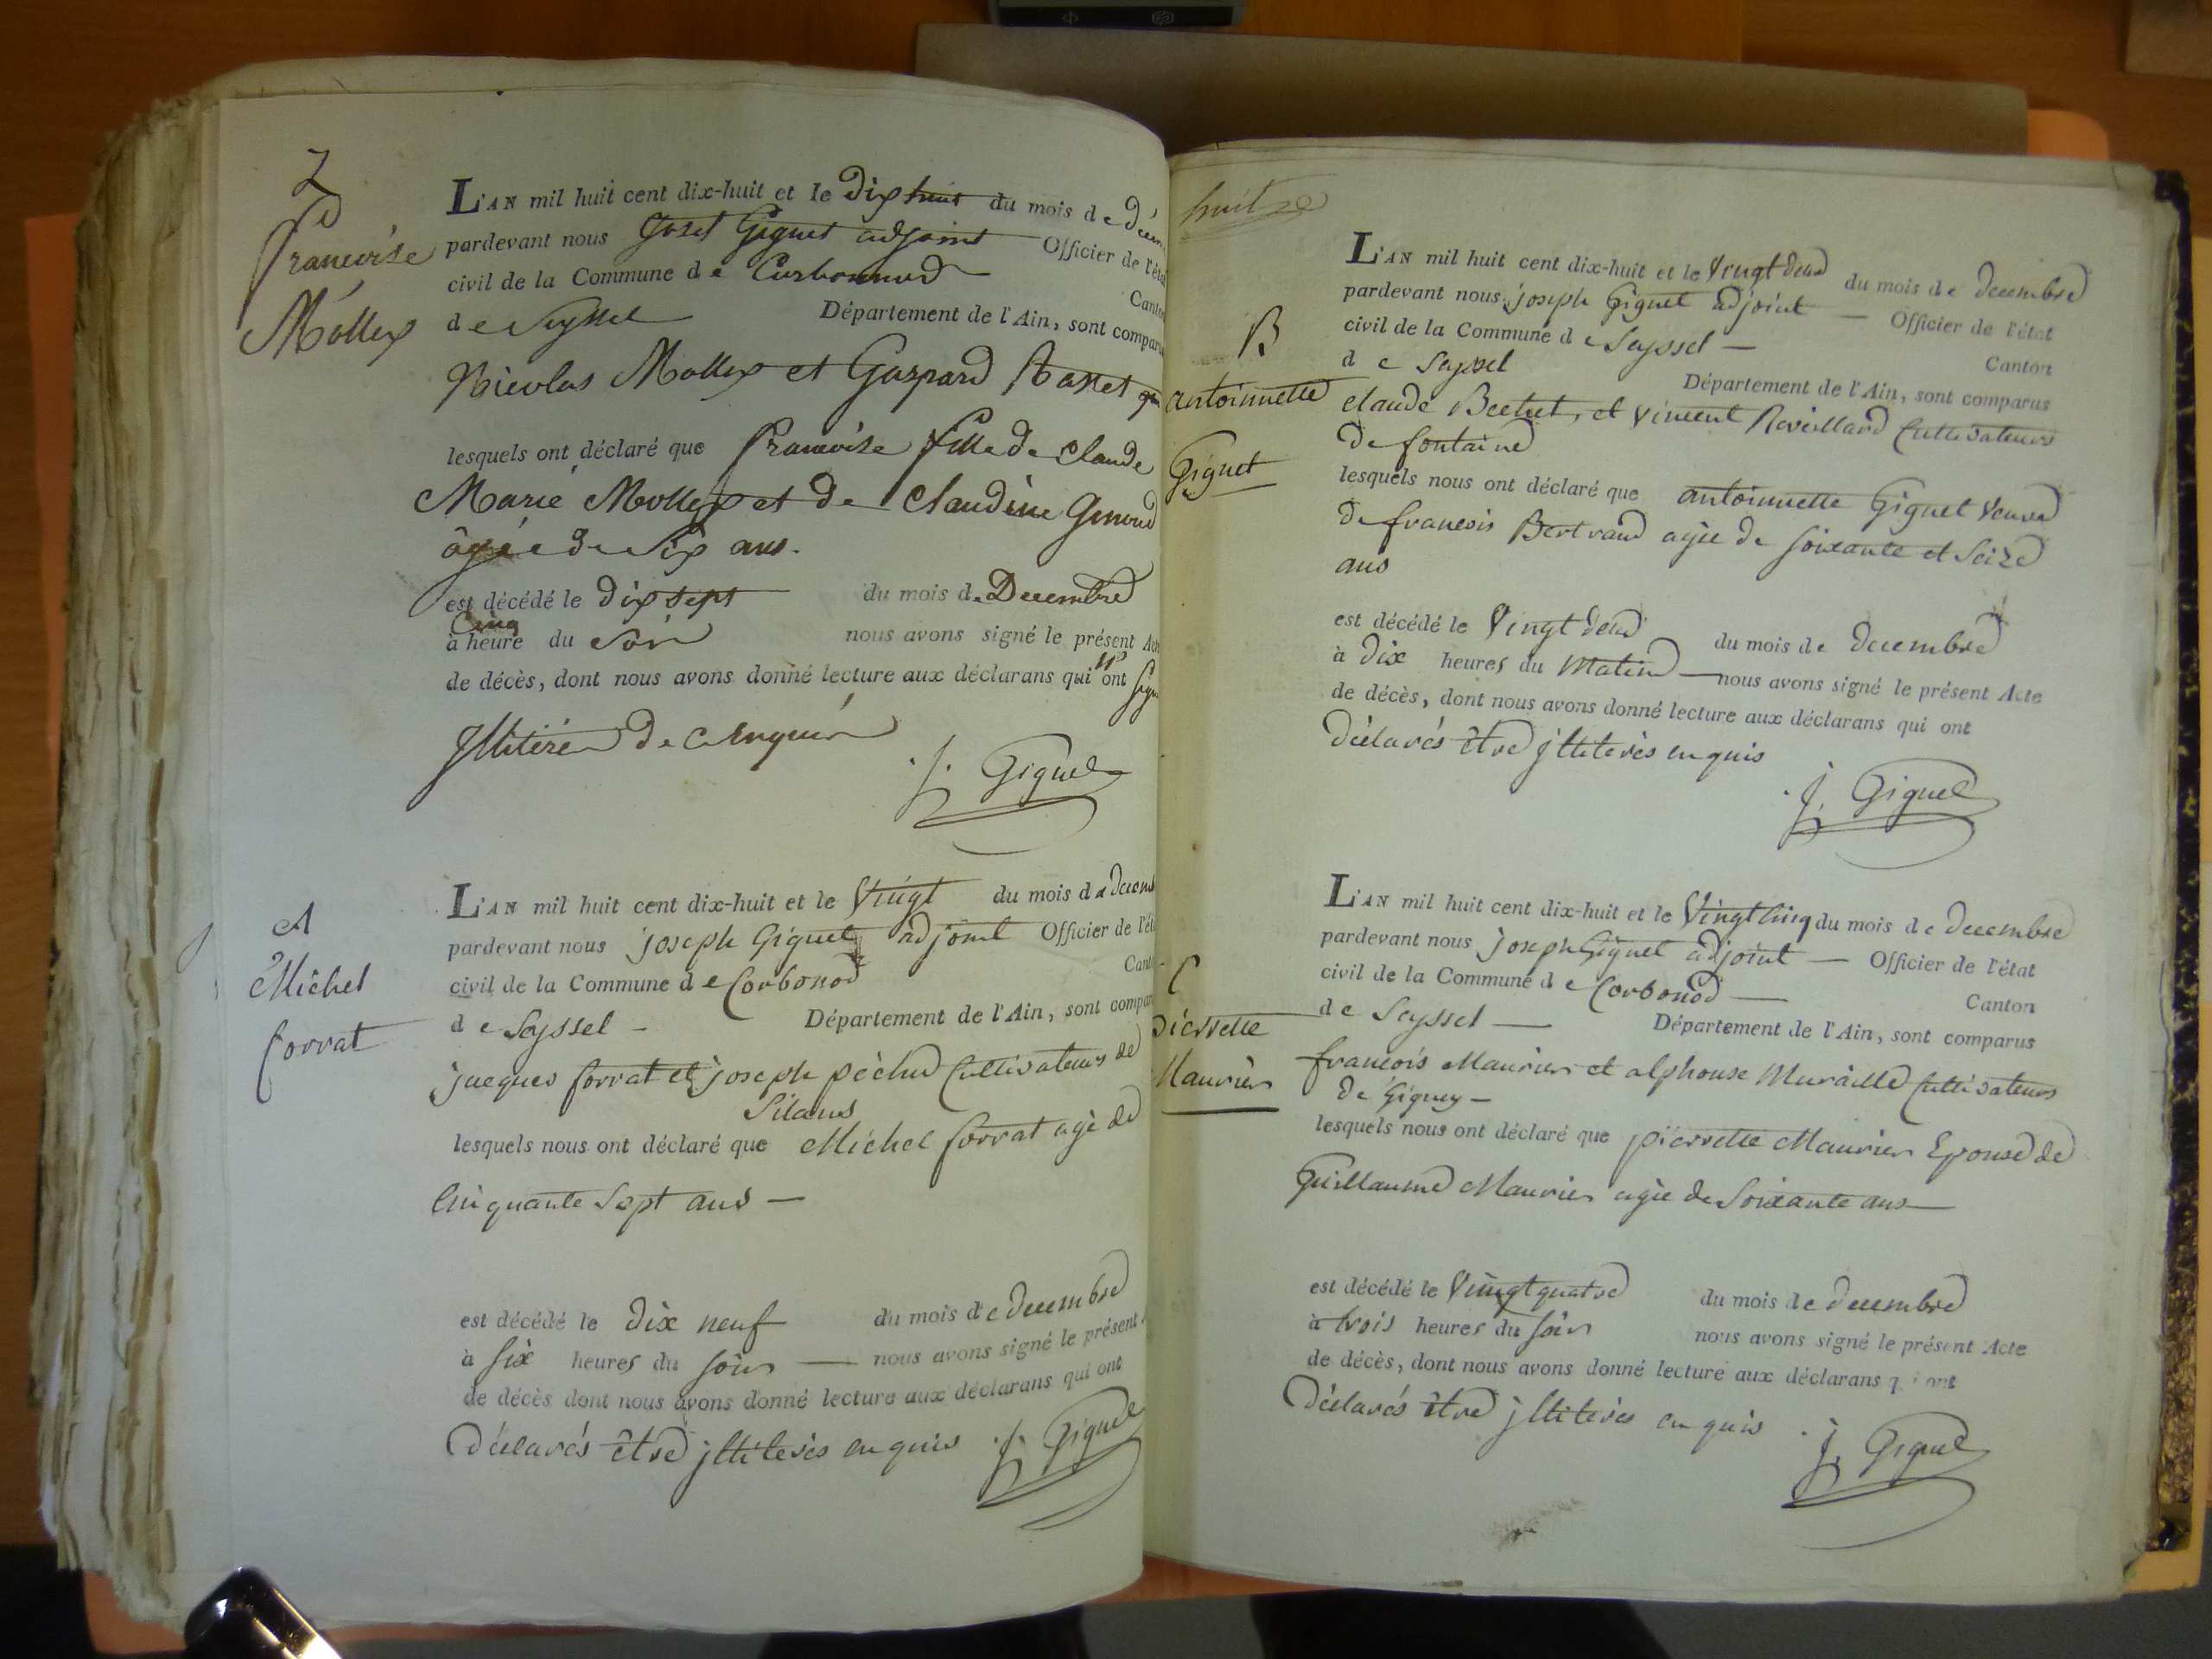 Z
Francoise
Mollex
L'AN mil huit cent dix-huit et le dix huit du mois de décem
pardevant nous Josef Giguet adjoint Officier de l'état
civil de la Commune de Corbonnod Canton
de Seyssel Département de l'Ain, sont comparus
Nicolas Mollex et Gaspard
lesquels ont déclaré que francoise fille de Claude
Marie Mollex et de Claudine
âgée de Six ans.
est décédé le dix sept du mois de Decembre
Cinq
à heure du Soir nous avons signé le présent Acte
de décès, dont nous avons donné lecture aux déclarans qui n'ont Signé
Illitéré de
j. Giguet
A
Michel
forrat
L'AN mil huit cent dix-huit et le Vingt du mois de decemb
pardevant nous joseph Giguet adjoint Officier de l'éta
civil de la Commune de Corbonod Canto
de Seyssel - Département de l'Ain, sont compar
jacques forrat et joseph péchud Cultivateurs de
Silans
lesquels nous ont déclaré que Michel forrat agé de
Cinquante Sept ans —
est décédé le dix neuf du mois de decembre
à six heures du soir — nous avons signé le présent
de décès dont nous avons donné lecture aux déclarans qui ont
déclarés être jllitérés enquis j. Giguet
huitre
B
antoinnette
Giguet
L'AN mil huit cent dix-huit et le Vingt deux du mois de decembre
pardevant nous joseph Giguet adjoint — Officier de l'état
civil de la Commune de Seyssel — Canton
de Seyssel Département de l'Ain, sont comparus
claude Bechet, et vincent Reveillard Cultivateurs
de fontaine
lesquels nous ont déclaré que antoinnette Giguet Veuve
de francois Bertrand agée de soixante et Seize
ans
est décédé le Vingt deux du mois de decembre
à dix heures du Matin — nous avons signé le présent Acte
de décès, dont nous avons donné lecture aux déclarans qui ont
déclarés être jllitérés enquis
j. Giguet
C
pierrette
Maurier
L'AN mil huit cent dix-huit et le Vingt Cinq du mois de decembre
pardevant nous joseph Giguet adjoint — Officier de l'état
civil de la Commune de Corbonod — Canton
de Seyssel — Département de l'Ain, sont comparus
francois Maurier et alphonse Muraille Cultivateurs
de Gignez —
lesquels nous ont déclaré que pierrette Maurier Epouse de
Guillaume Maurier agée de Soixante ans —
est décédé le Vingt quatre du mois de decembre
à trois heures du soir nous avons signé le présent Acte
de décès, dont nous avons donné lecture aux déclarans qui ont
déclarés être jllitérés enquis j. Giguet